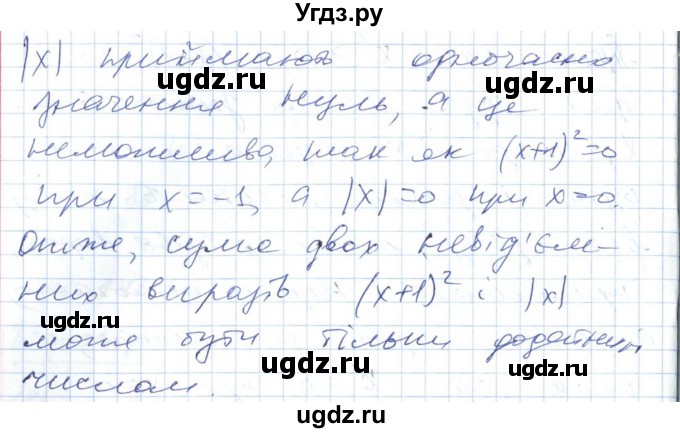 Угдз.ру
|x| приймають одночасно
значення нуль, а це
неможливо, так як (x+1)²=0
при x=-1, а |x|=0 при x=0.
Отже, сума двох невід'єм-
них виразів (x+1)² і |x|
може бути тільки додатним
числом.
ugdz.ru
ugdz.ru
ugdz.ru
ugdz.ru
ugdz.ru
ugdz.ru
ugdz.ru
ugdz.ru
ugdz.ru